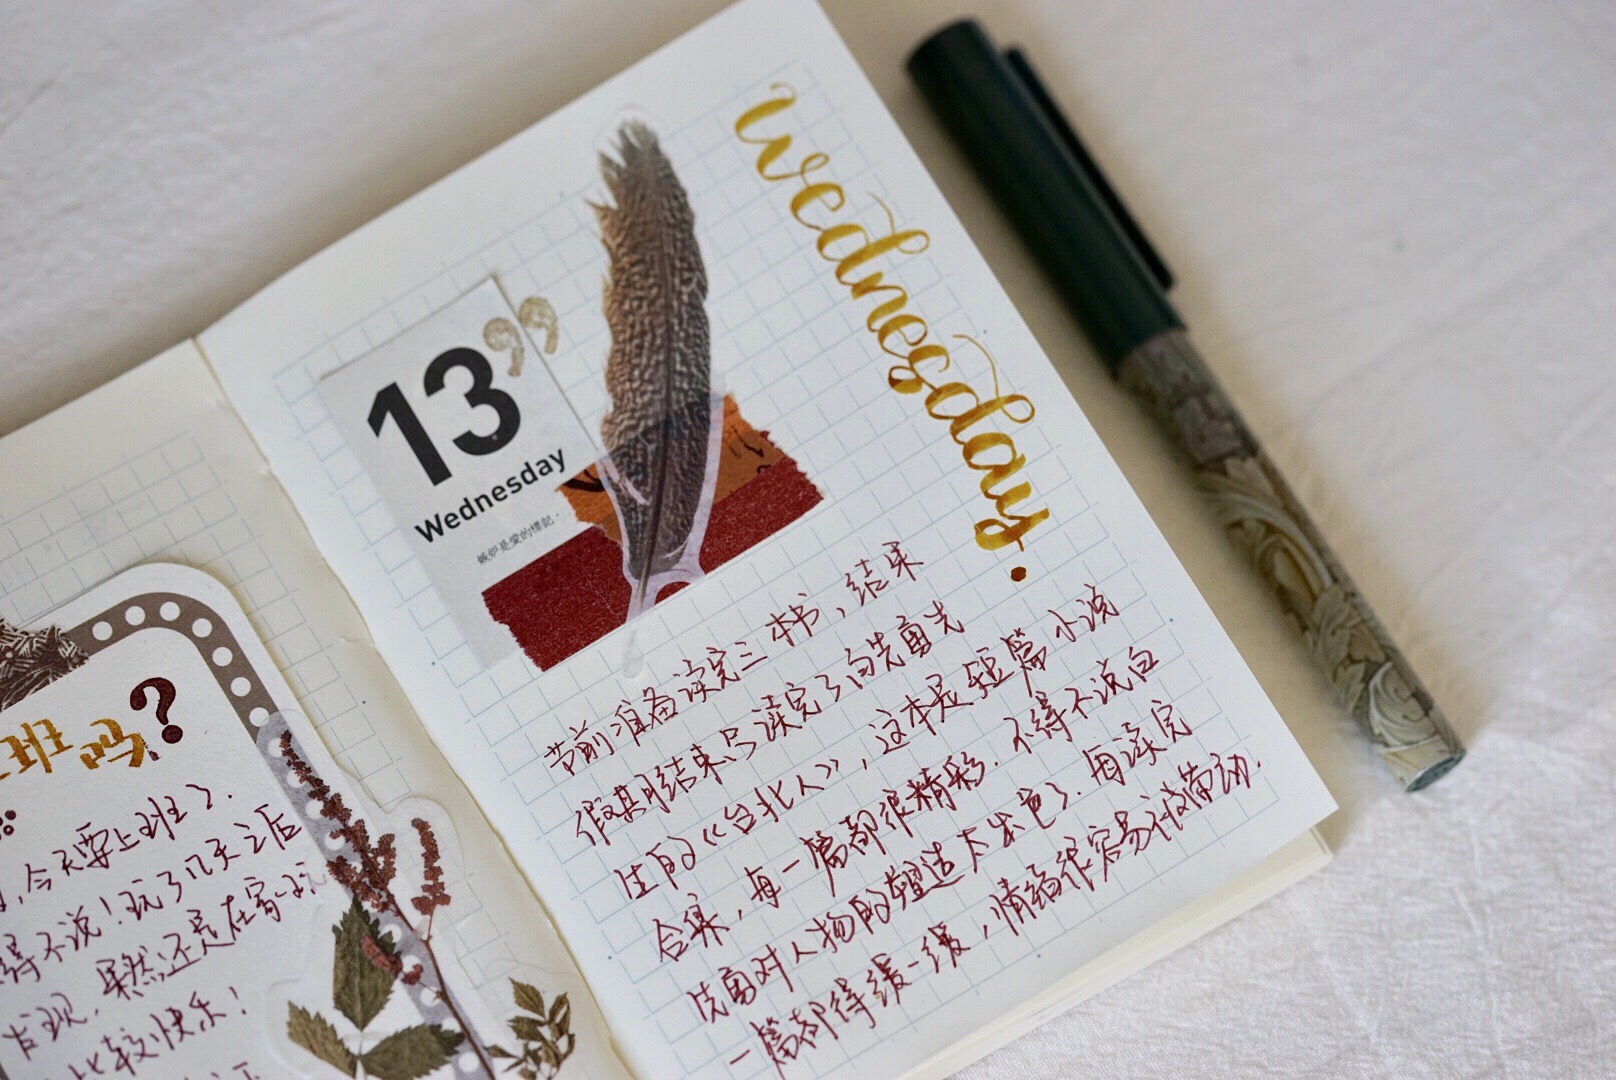 班吗?
今天要上班了.
得不说!玩了几天之后
发现,果然还是在家玩
比较快乐!
13
Wednesday
嫉妒是愛的標記。
wednesday.
节前准备读完三本书,结果
假期结束只读完了白先勇先
生的《台北人》,这本是短篇小说
合集,每一篇都很精彩.不得不说白
先勇对人物的塑造太出色了.每读完
一篇都得缓一缓,情绪很容易被带动.